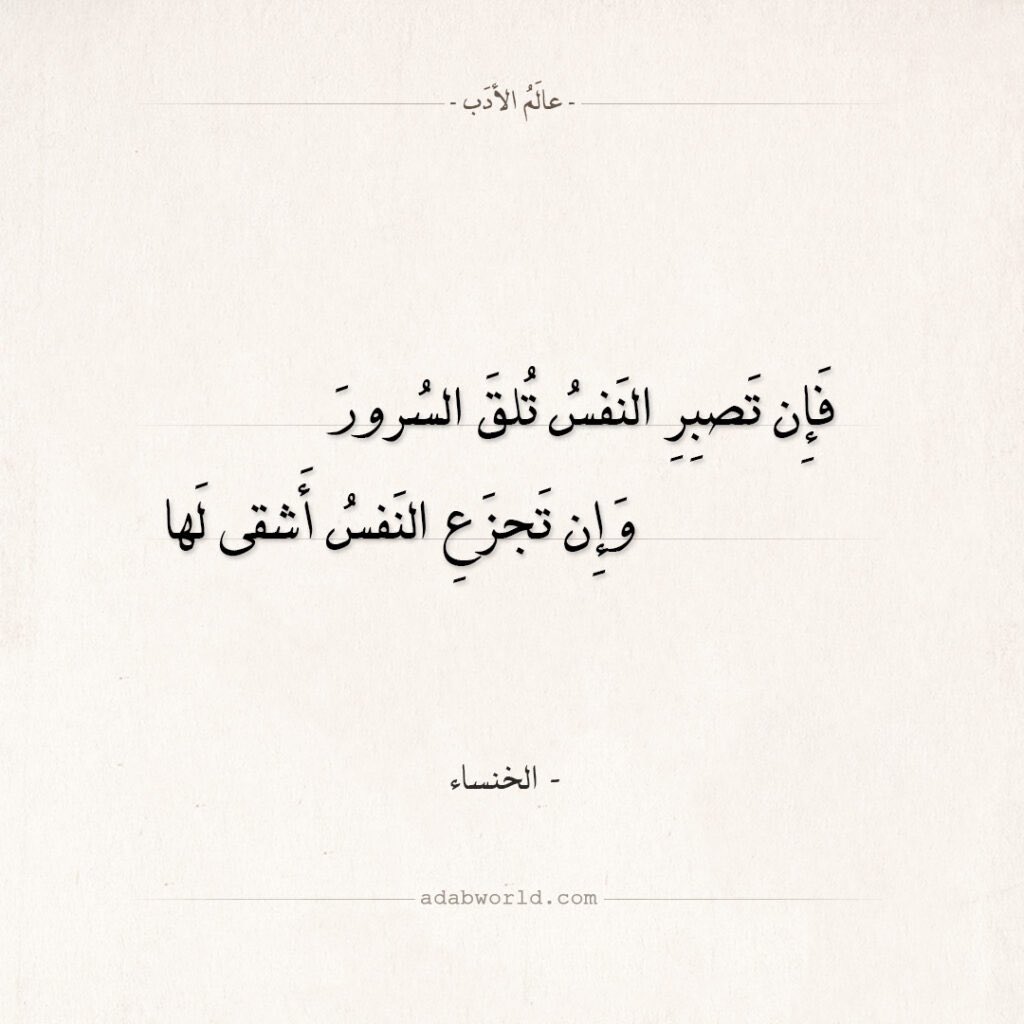 - عالَمُ الأدَب -
فَإِن تَصبِرِ النَفسُ تُلقَ السُرورَ
وَإِن تَجزَعِ النَفسُ أَشقى لَها
- الخنساء
adabworld.com